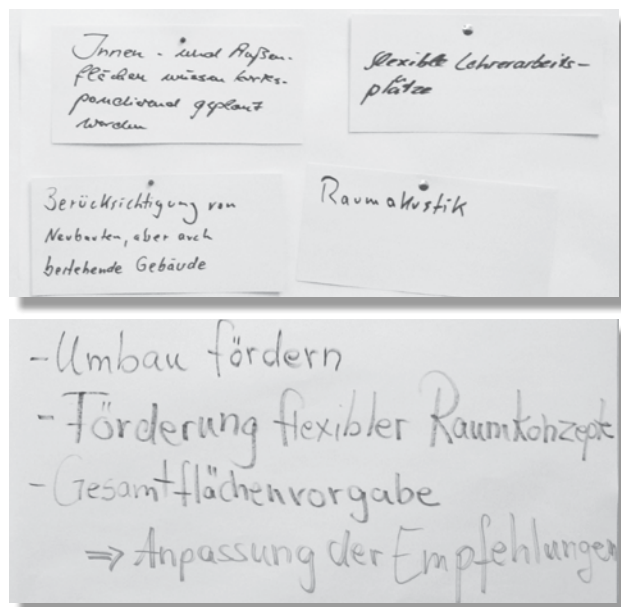 Innen- und Außen-
flächen müssen korres-
pondierend geplant
werden
flexible Lehrerarbeits-
plätze
Berücksichtigung von
Neubauten, aber auch
bestehende Gebäude
Raumakustik
- Umbau fördern
- Förderung flexibler Raumkonzepte
- Gesamtflächenvorgabe
⇒ Anpassung der Empfehlungen